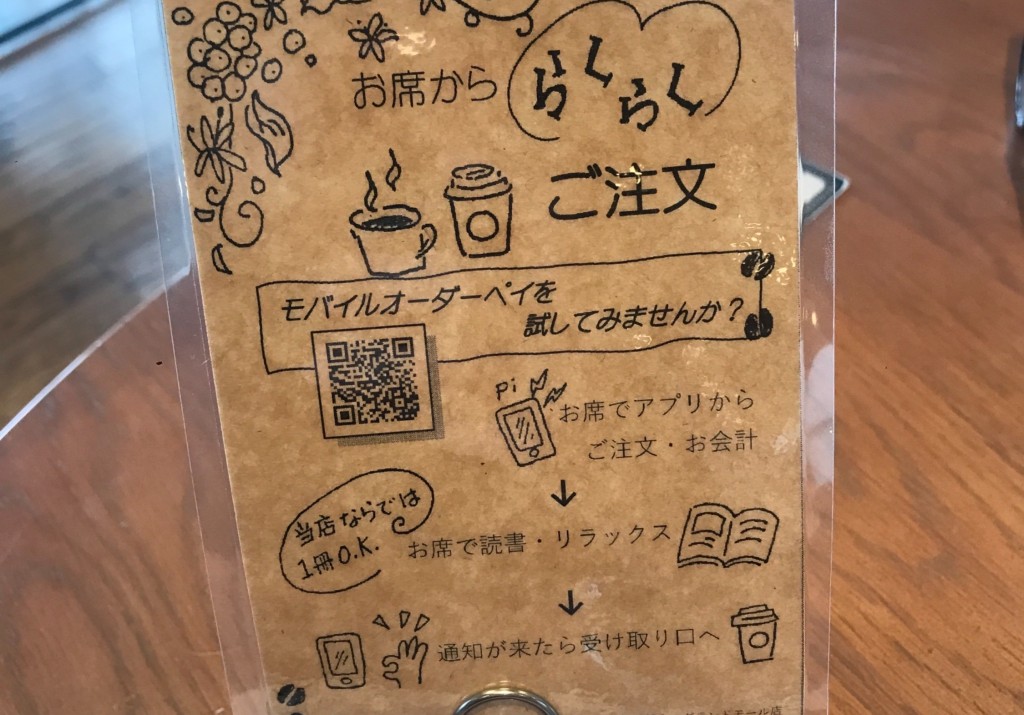 お席から らくらく
ご注文
モバイルオーダーペイを
試してみませんか？
pi
お席でアプリから
ご注文・お会計
↓
当店ならでは
1冊O.K.
お席で読書・リラックス
↓
通知が来たら受け取り口へ